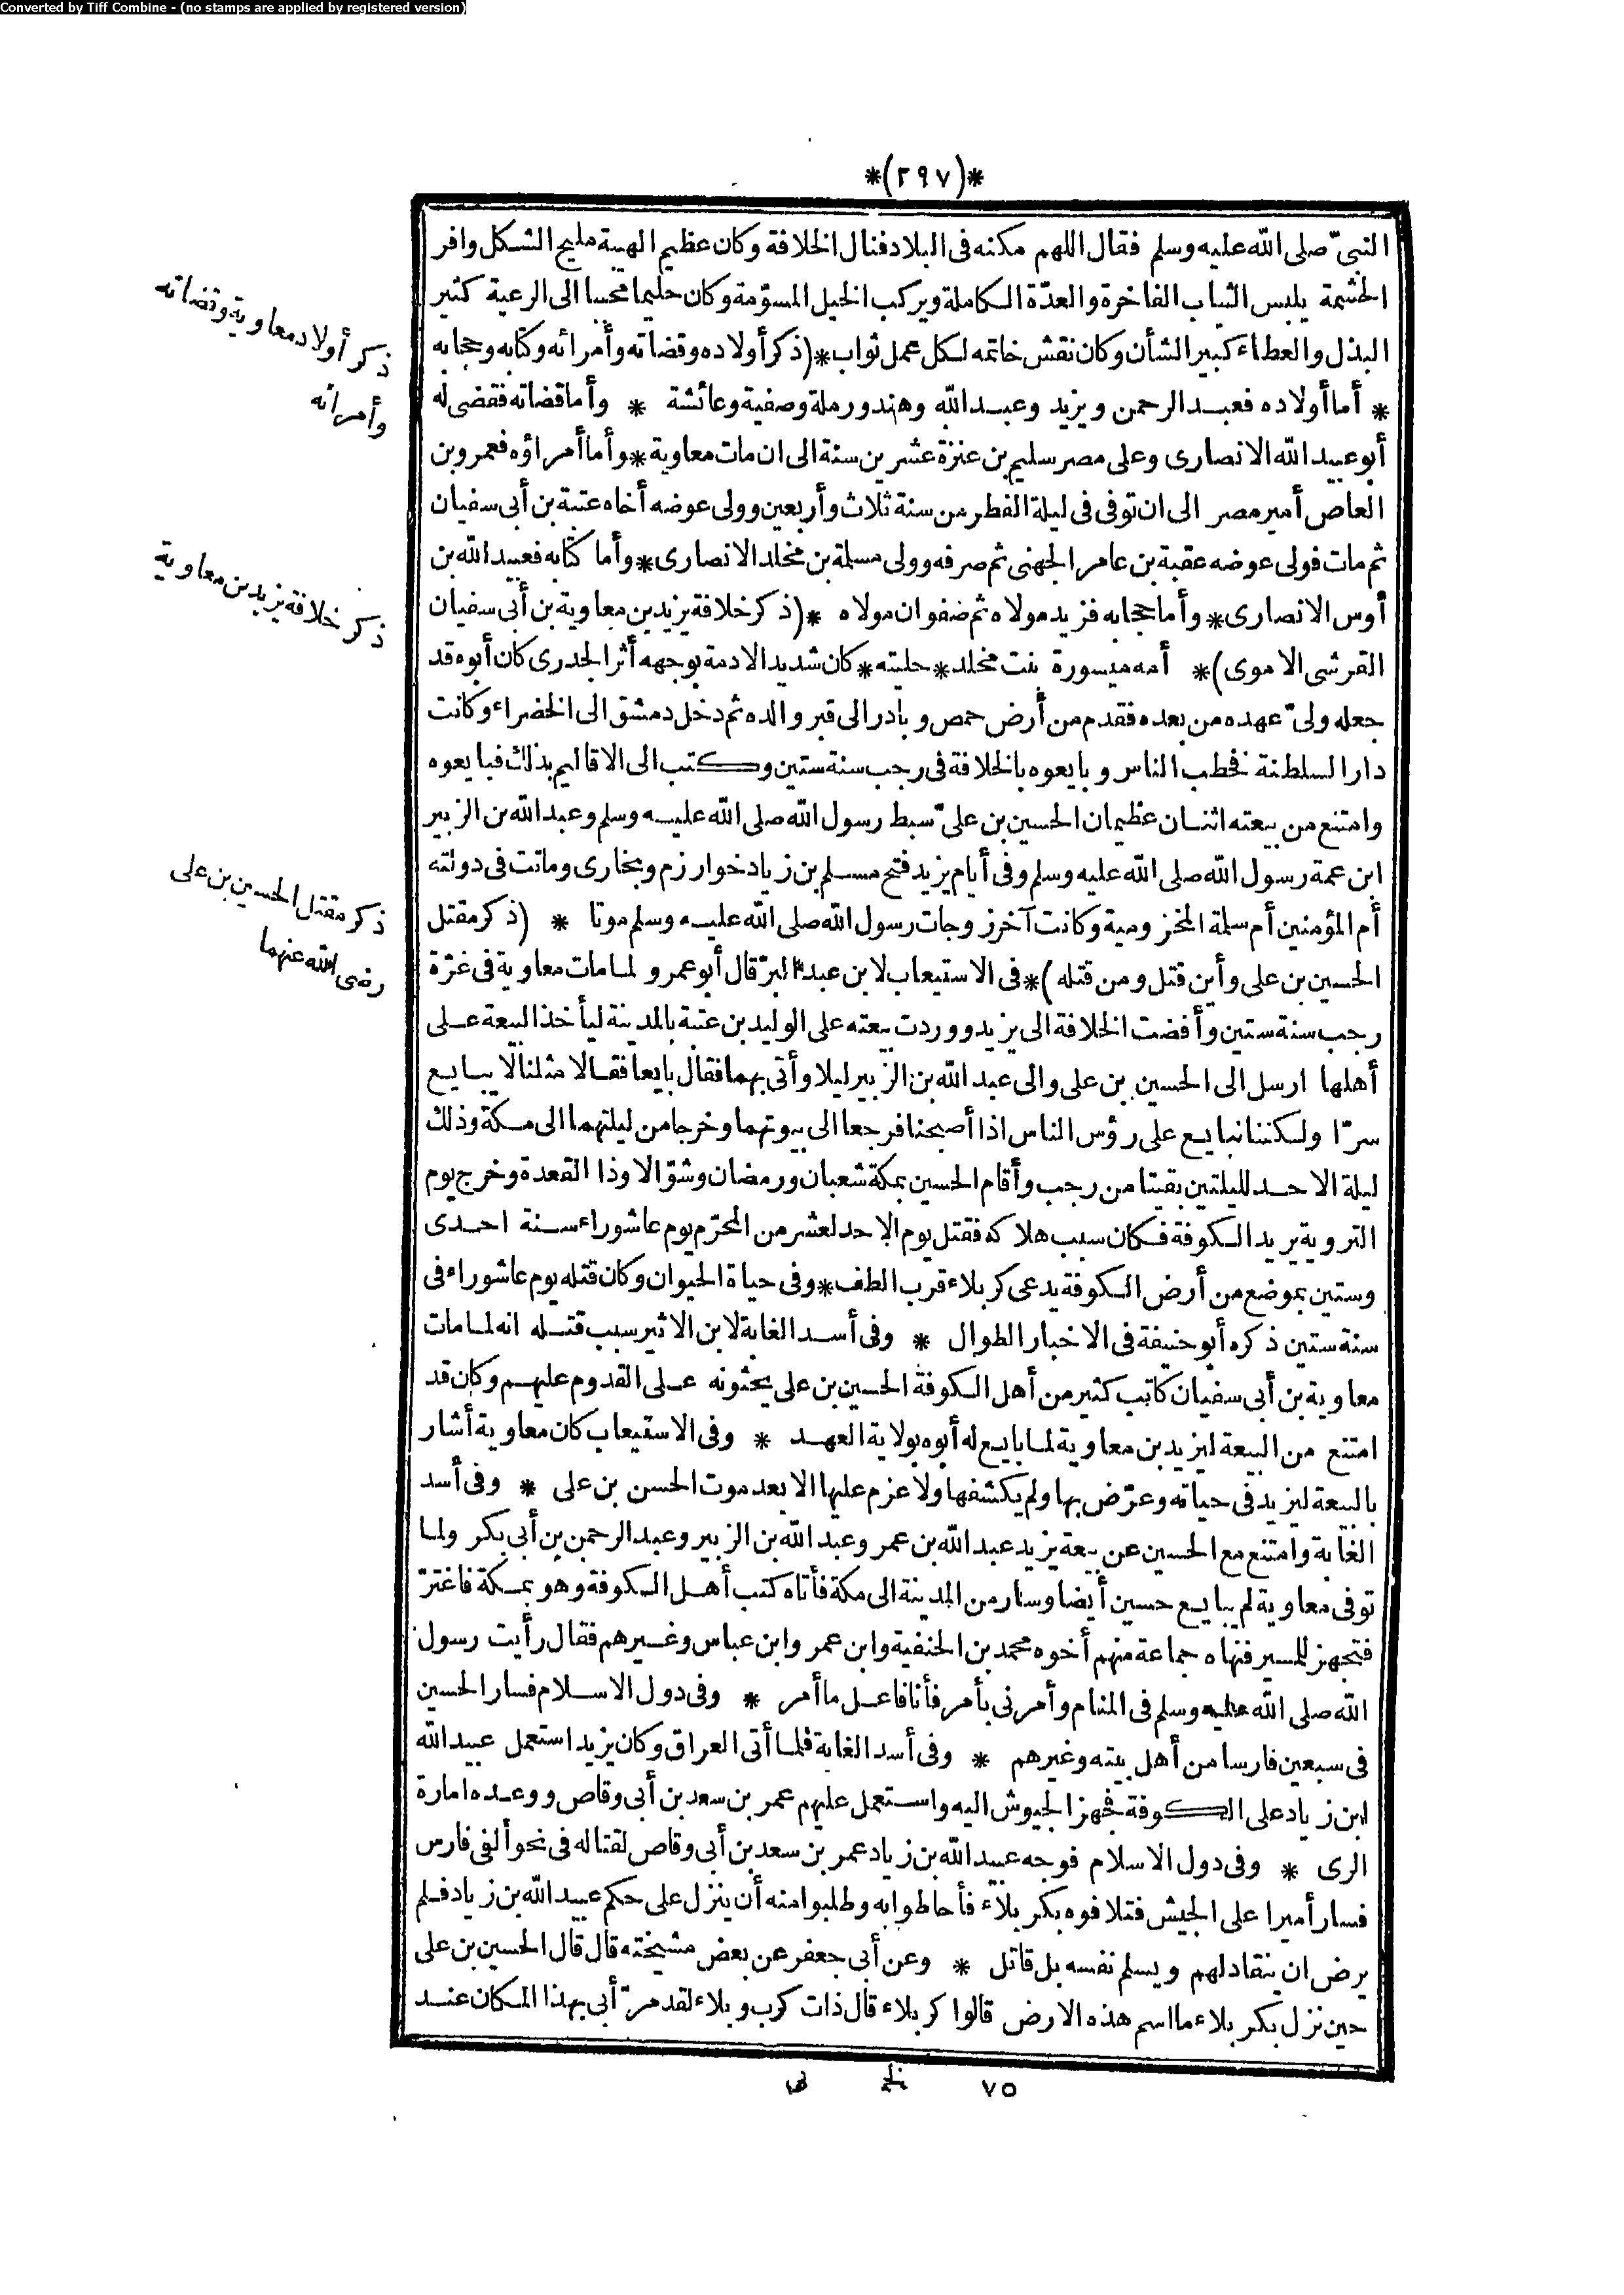 Converted by Tiff Combine - (no stamps are applied by registered version)
*(٢٩٧)*
النبىّ صلى الله عليه وسلم فقال اللهم مكنه فى البلاد فنال الخلافة وكان عظيم الهيبة مليح الشكل وافر
الحشمة يلبس الثياب الفاخرة والعدّة الكاملة ويركب الخيل المسوّمة وكان حليما محببا الى الرعية كثير
البذل والعطاء كبير الشأن وكان نقش خاتمه لكل عمل ثواب *(ذكر أولاده وقضاته وأمرائه وكتابه وحجابه
* أما أولاده فعبد الرحمن ويزيد وعبد الله وهند ورملة وصفية وعائشة * وأما قضاته فقضى له
أبو عبيد الله الانصارى وعلى مصر سليم بن عنزة عشرين سنة الى ان مات معاوية * وأما أمراؤه فعمرو بن
العاص أمير مصر الى ان توفى فى ليلة الفطر من سنة ثلاث وأربعين وولى عوضه أخاه عتبة بن أبى سفيان
ثم مات فولى عوضه عقبة بن عامر الجهنى ثم صرفه وولى مسلمة بن مخلد الانصارى * وأما كتابه فعبيد الله بن
أوس الانصارى * وأما حجابه فزيد مولاه ثم صفوان مولاه *(ذكر خلافة يزيد بن معاوية بن أبى سفيان
القرشى الاموى)* أمه ميسورة بنت مخلد * حليته * كان شديد الادمة بوجهه أثر الجدرى كان أبوه قد
جعله ولىّ عهده من بعده فقدم من أرض حمص وبادر الى قبر والده ثم دخل دمشق الى الخضراء وكانت
دار السلطنة فخطب الناس وبايعوه بالخلافة فى رجب سنة ستين وكتب الى الاقاليم بذلك فبايعوه
وامتنع من بيعته اثنان عظيمان الحسين بن علىّ سبط رسول الله صلى الله عليه وسلم وعبد الله بن الزبير
ابن عمة رسول الله صلى الله عليه وسلم وفى أيام يزيد فتح مسلم بن زياد خوارزم وبخارى وماتت فى دولته
أم المؤمنين أم سلمة المخزومية وكانت آخر زوجات رسول الله صلى الله عليه وسلم موتا * (ذكر مقتل
الحسين بن على وأين قتل ومن قتله)* فى الاستيعاب لابن عبد البرّ قال أبو عمر و لما مات معاوية فى غرّة
رجب سنة ستين وأفضت الخلافة الى يزيد ووردت بيعته على الوليد بن عتبة بالمدينة ليأخذ البيعة على
أهلها ارسل الى الحسين بن على والى عبد الله بن الزبير ليلا وأتى بهما فقال بايعا فقالا مثلنا لا يبايع
سرّا ولكننا نبايع على رؤس الناس اذا أصبحنا فرجعا الى بيوتهما وخرجا من ليلتهما الى مكة وذلك
ليلة الاحد لليلتين بقيتا من رجب وأقام الحسين بمكة شعبان ورمضان وشوّالا وذا القعدة وخرج يوم
التروية يريد الكوفة فكان سبب هلاكه فقتل يوم الاحد لعشر من المحرّم يوم عاشوراء سنة احدى
وستين بموضع من أرض الكوفة يدعى كربلاء قرب الطف * وفى حياة الحيوان وكان قتله يوم عاشوراء فى
سنة ستين ذكره أبو حنيفة فى الاخبار الطوال * وفى أسد الغابة لابن الاثير سبب قتله انه لما مات
معاوية بن أبى سفيان كاتب كثير من أهل الكوفة الحسين بن على يحثونه على القدوم عليهم وكان قد
امتنع من البيعة ليزيد بن معاوية لما بايع له أبوه بولاية العهد * وفى الاستيعاب كان معاوية أشار
بالبيعة ليزيد فى حياته وعرّض بها ولم يكشفها ولا عزم عليها الا بعد موت الحسن بن على * وفى أسد
الغابة وامتنع مع الحسين عن بيعة يزيد عبد الله بن عمر وعبد الله بن الزبير وعبد الرحمن بن أبى بكر ولما
توفى معاوية لم يبايع حسين أيضا وسار من المدينة الى مكة فأتاه كتب أهل الكوفة وهو بمكة فاغترّ
فتجهز للمسير فنهاه جماعة منهم أخوه محمد بن الحنفية وابن عمر وابن عباس وغيرهم فقال رأيت رسول
الله صلى الله عليه وسلم فى المنام وأمرنى بأمر فأنا فاعل ما أمر * وفى دول الاسلام فسار الحسين
فى سبعين فارسا من أهل بيته وغيرهم * وفى أسد الغابة فلما أتى العراق وكان يزيد استعمل عبيد الله
ابن زياد على الكوفة فجهز الجيوش اليه واستعمل عليهم عمر بن سعد بن أبى وقاص ووعده امارة
الرى * وفى دول الاسلام فوجه عبيد الله بن زياد عمر بن سعد بن أبى وقاص لقتاله فى نحو ألفى فارس
فسار أميرا على الجيش فتلافوه بكربلاء فأحاطوا به وطلبوا منه أن ينزل على حكم عبيد الله بن زياد فلم
يرض ان ينقاد لهم ويسلم نفسه بل قاتل * وعن أبى جعفر عن بعض مشيخته قال قال الحسين بن على
حين نزل بكربلاء ما اسم هذه الارض قالوا كربلاء قال ذات كرب وبلاء لقد مرّ أبى بهذا المكان عند
ذكر أولاد معاوية وقضاته
وأمرائه
ذكر خلافة يزيد بن معاوية
ذكر مقتل الحسين بن على
رضى الله عنهما
٧٥